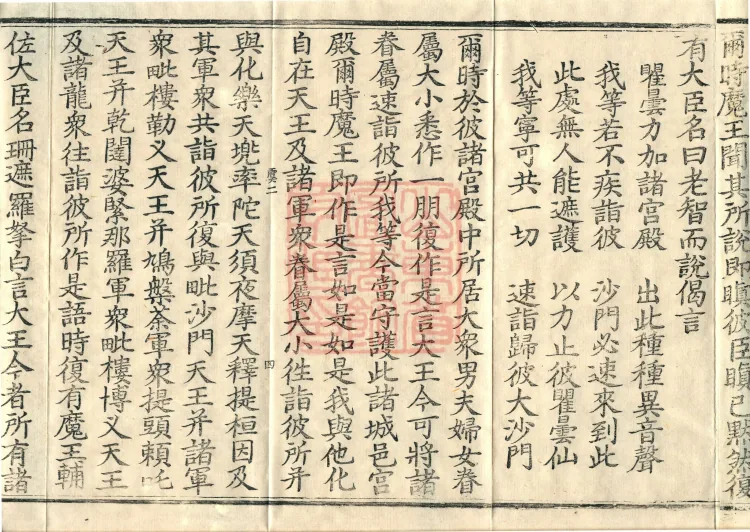 爾時魔王聞其所說即瞋彼臣瞋已默然復
有大臣名曰老智而說偈言
瞿曇力加諸宮殿　出此種種異音聲
我等若不疾詣彼　沙門必速來到此
此處無人能遮護　以力止彼瞿曇仙
我等寧可共一切　速詣歸彼大沙門
爾時於彼諸宮殿中所居大衆男夫婦女眷
屬大小悉作一朋復作是言大王今可將諸
眷屬速詣彼所我等今當守護此諸城邑宮
殿爾時魔王即作是言如是如是我與他化
自在天王及諸軍衆眷屬大小徃詣彼所并
虞二　四
與化樂天兠率陀天須夜摩天釋提桓因及
其軍衆共詣彼所復與毗沙門天王并諸軍
衆毗樓勒叉天王并鳩槃荼軍衆提頭賴吒
天王并乾闥婆緊那羅軍衆毗樓博叉天王
及諸龍衆往詣彼所作是語時復有魔王輔
佐大臣名珊遮羅拏白言大王今者所有諸